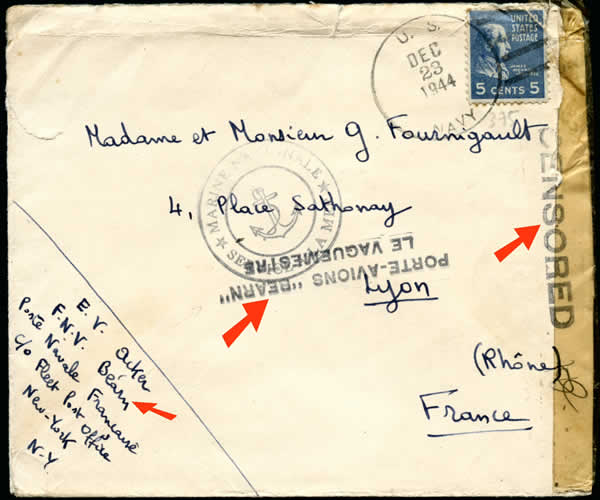 U. S.
DEC
23
1944
NAVY
UNITED
STATES
POSTAGE
5 CENTS 5
375
Madame et Monsieur G. Fournigault
4, Place Sathonay
Lyon
(Rhône)
France
CENSORED
MARINE NATIONALE
PORTE-AVIONS "BEARN"
LE VAGUEMESTRE
E. V. Acker
F.N.V. Béarn
Poste Navale Française
c/o Fleet Post Office
New-York
N-Y